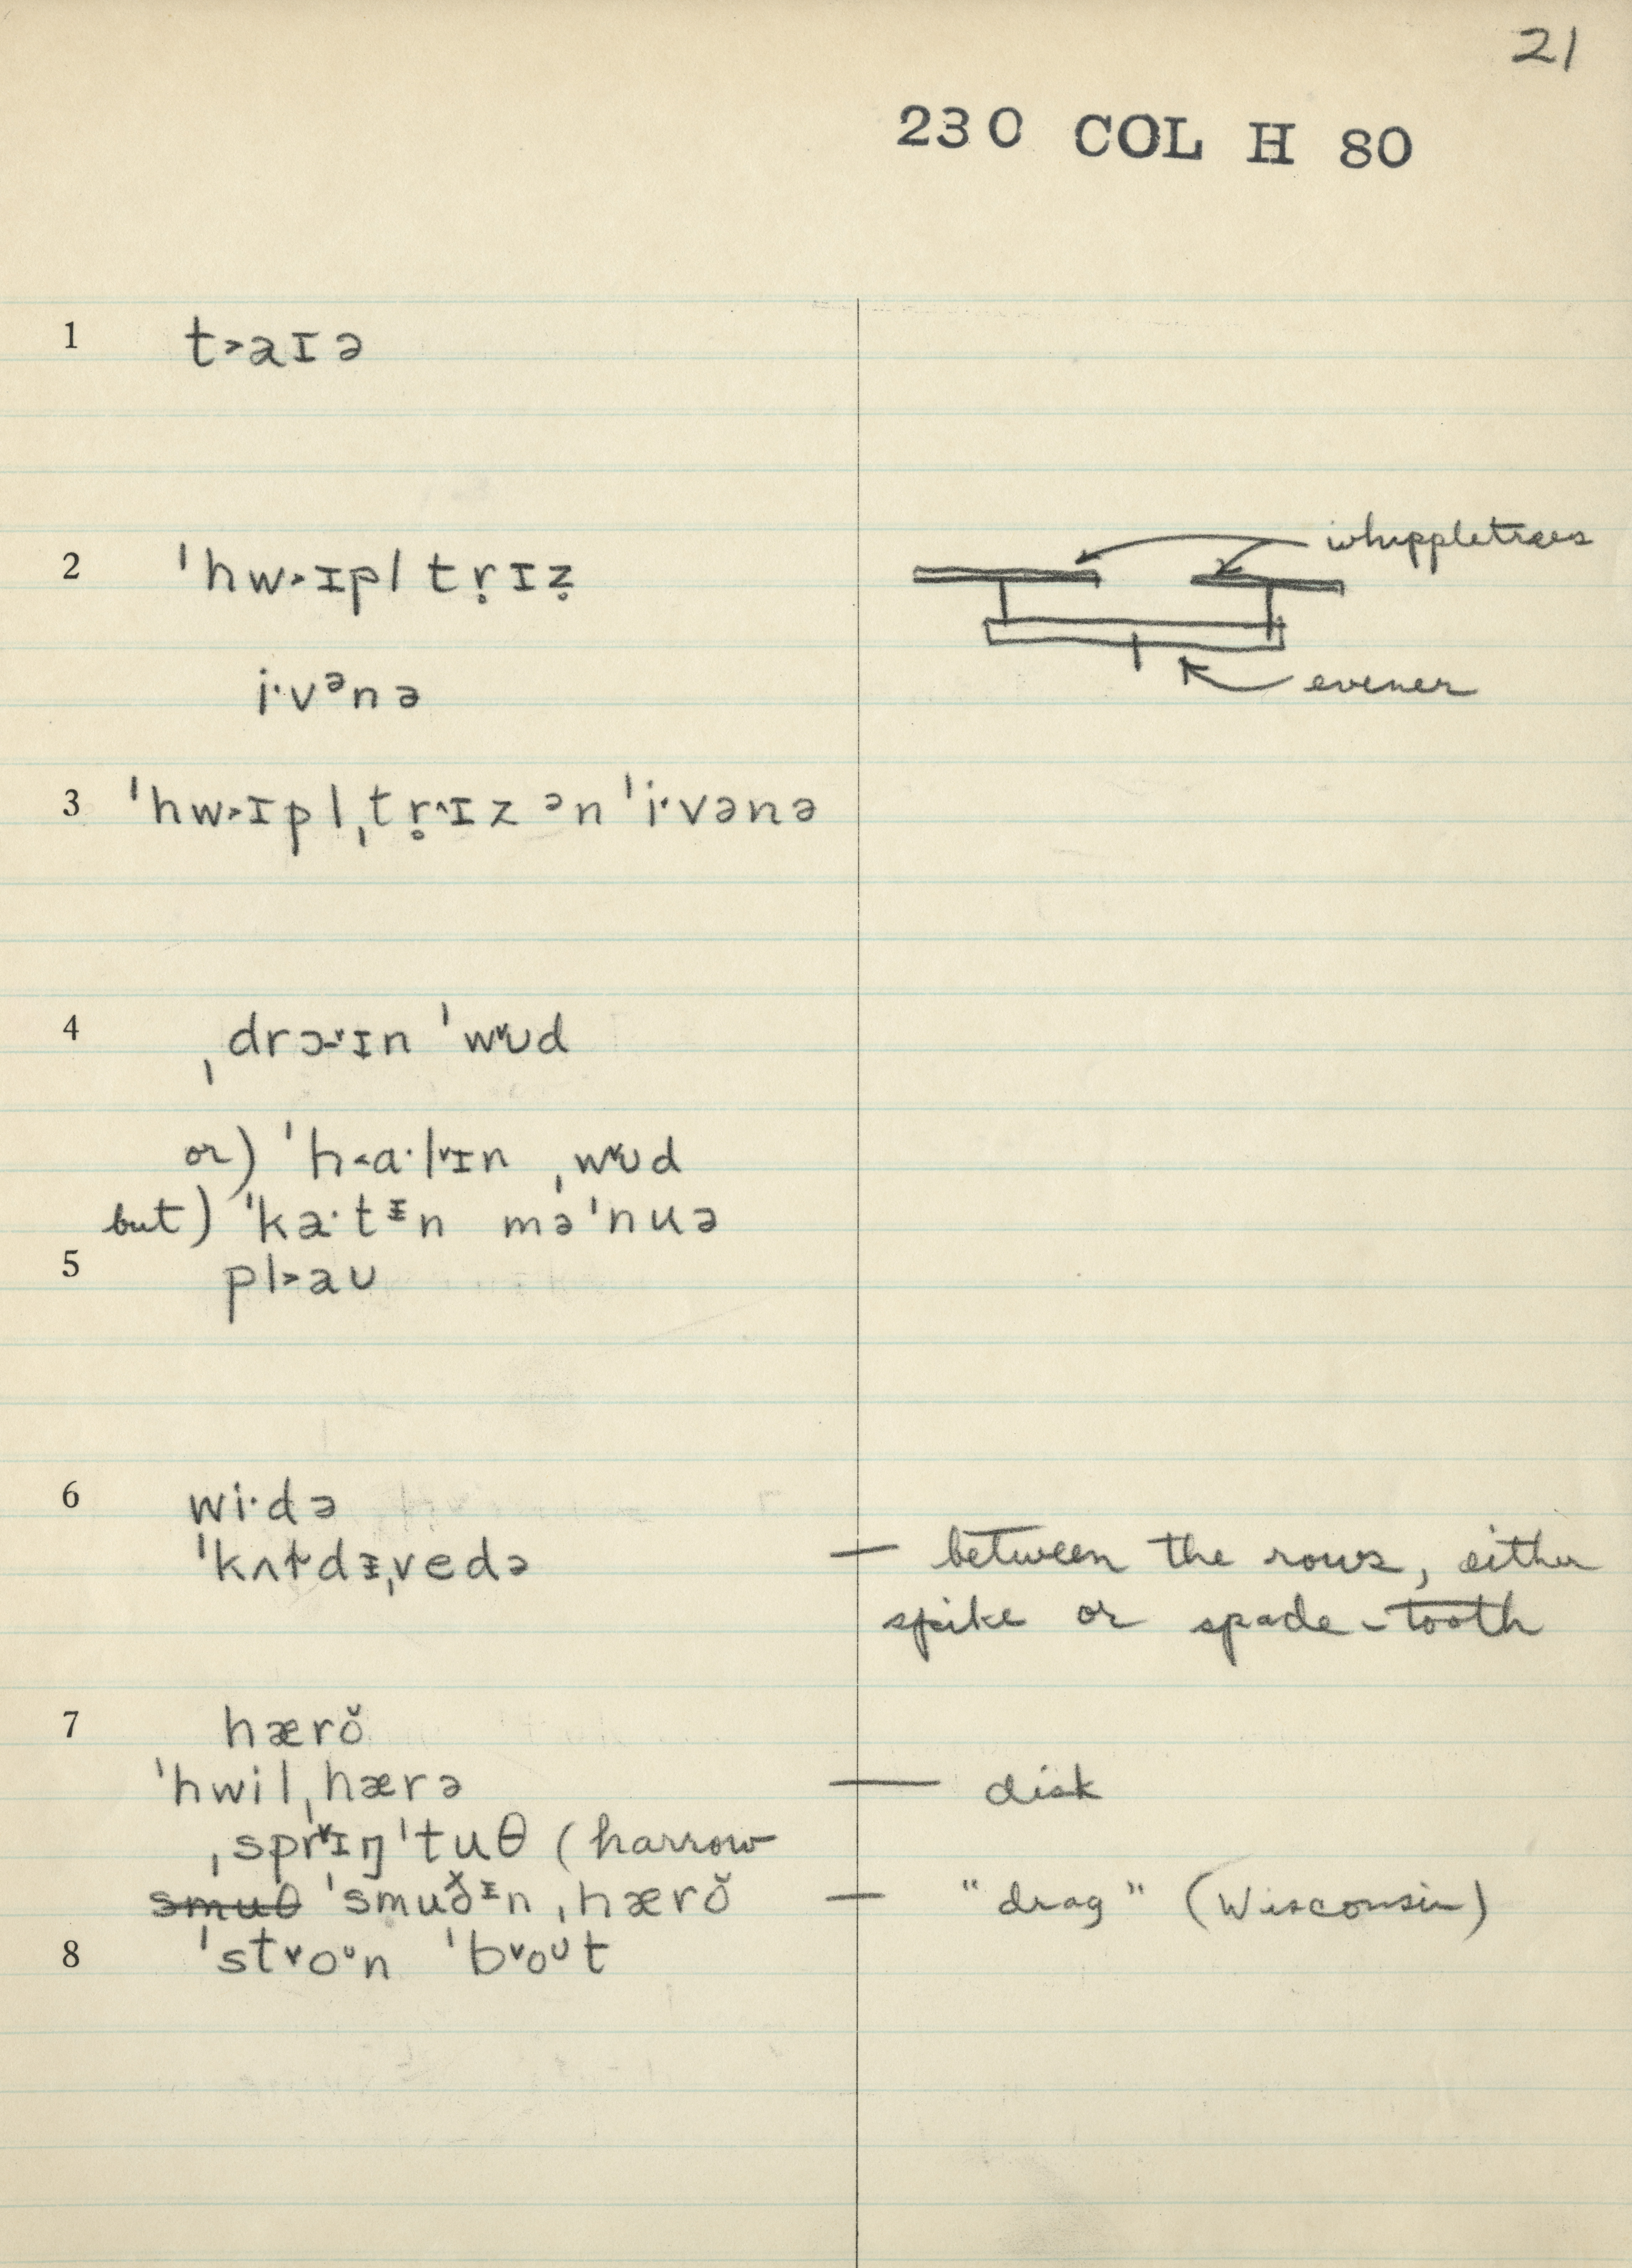 21
230 COL H 80
1 t˃aɪə
2 ˈhw˃ɪpl tr̥ɪz̥
whippletrees
i·vᵊnə
evener
3 ˈhw˃ɪplˌtr̥˄ɪz ᵊn ˈi·vənə
4 ˌdrɔ˗˅ɪn ˈw˅ʊd
or) ˈh˂a·l˅ɪn ˌw˅ʊd
but) ˈka·tᵻn məˈnuə
5 pl˃aʊ
6 wi·də
ˈkʌɫtdᵻˌvedə — between the rows, either
spike or spade-tooth
7 hærŏ
ˈhwilˌhærə — disk
ˌspr˅ɪŋ ˈtuθ (harrow
smuθ ˈsmuðᵻn ˌhærŏ — "drag" (Wisconsin)
8 ˈst˅oᶷn ˈb˅oᶷt